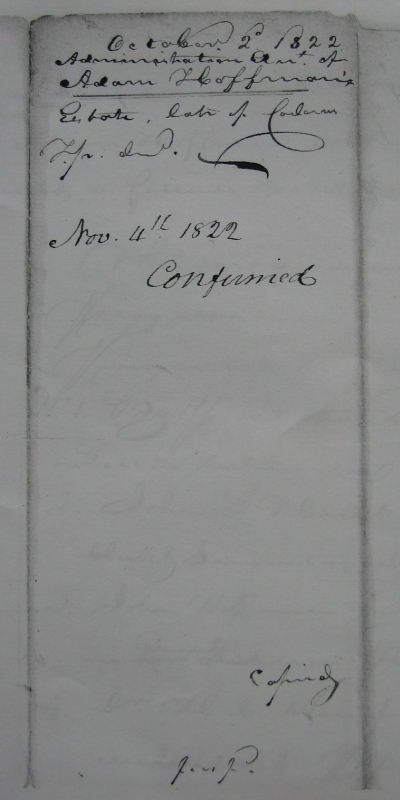 October 2d 1822
Administration Act. of
Adam Hoffman's
Estate, late of Codorus
Tp. decd.
Nov. 4th 1822
Confirmed
Copied